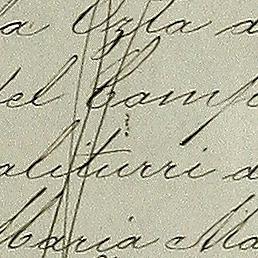 la Orla d
del Camp
aliturri d
Maria Ma